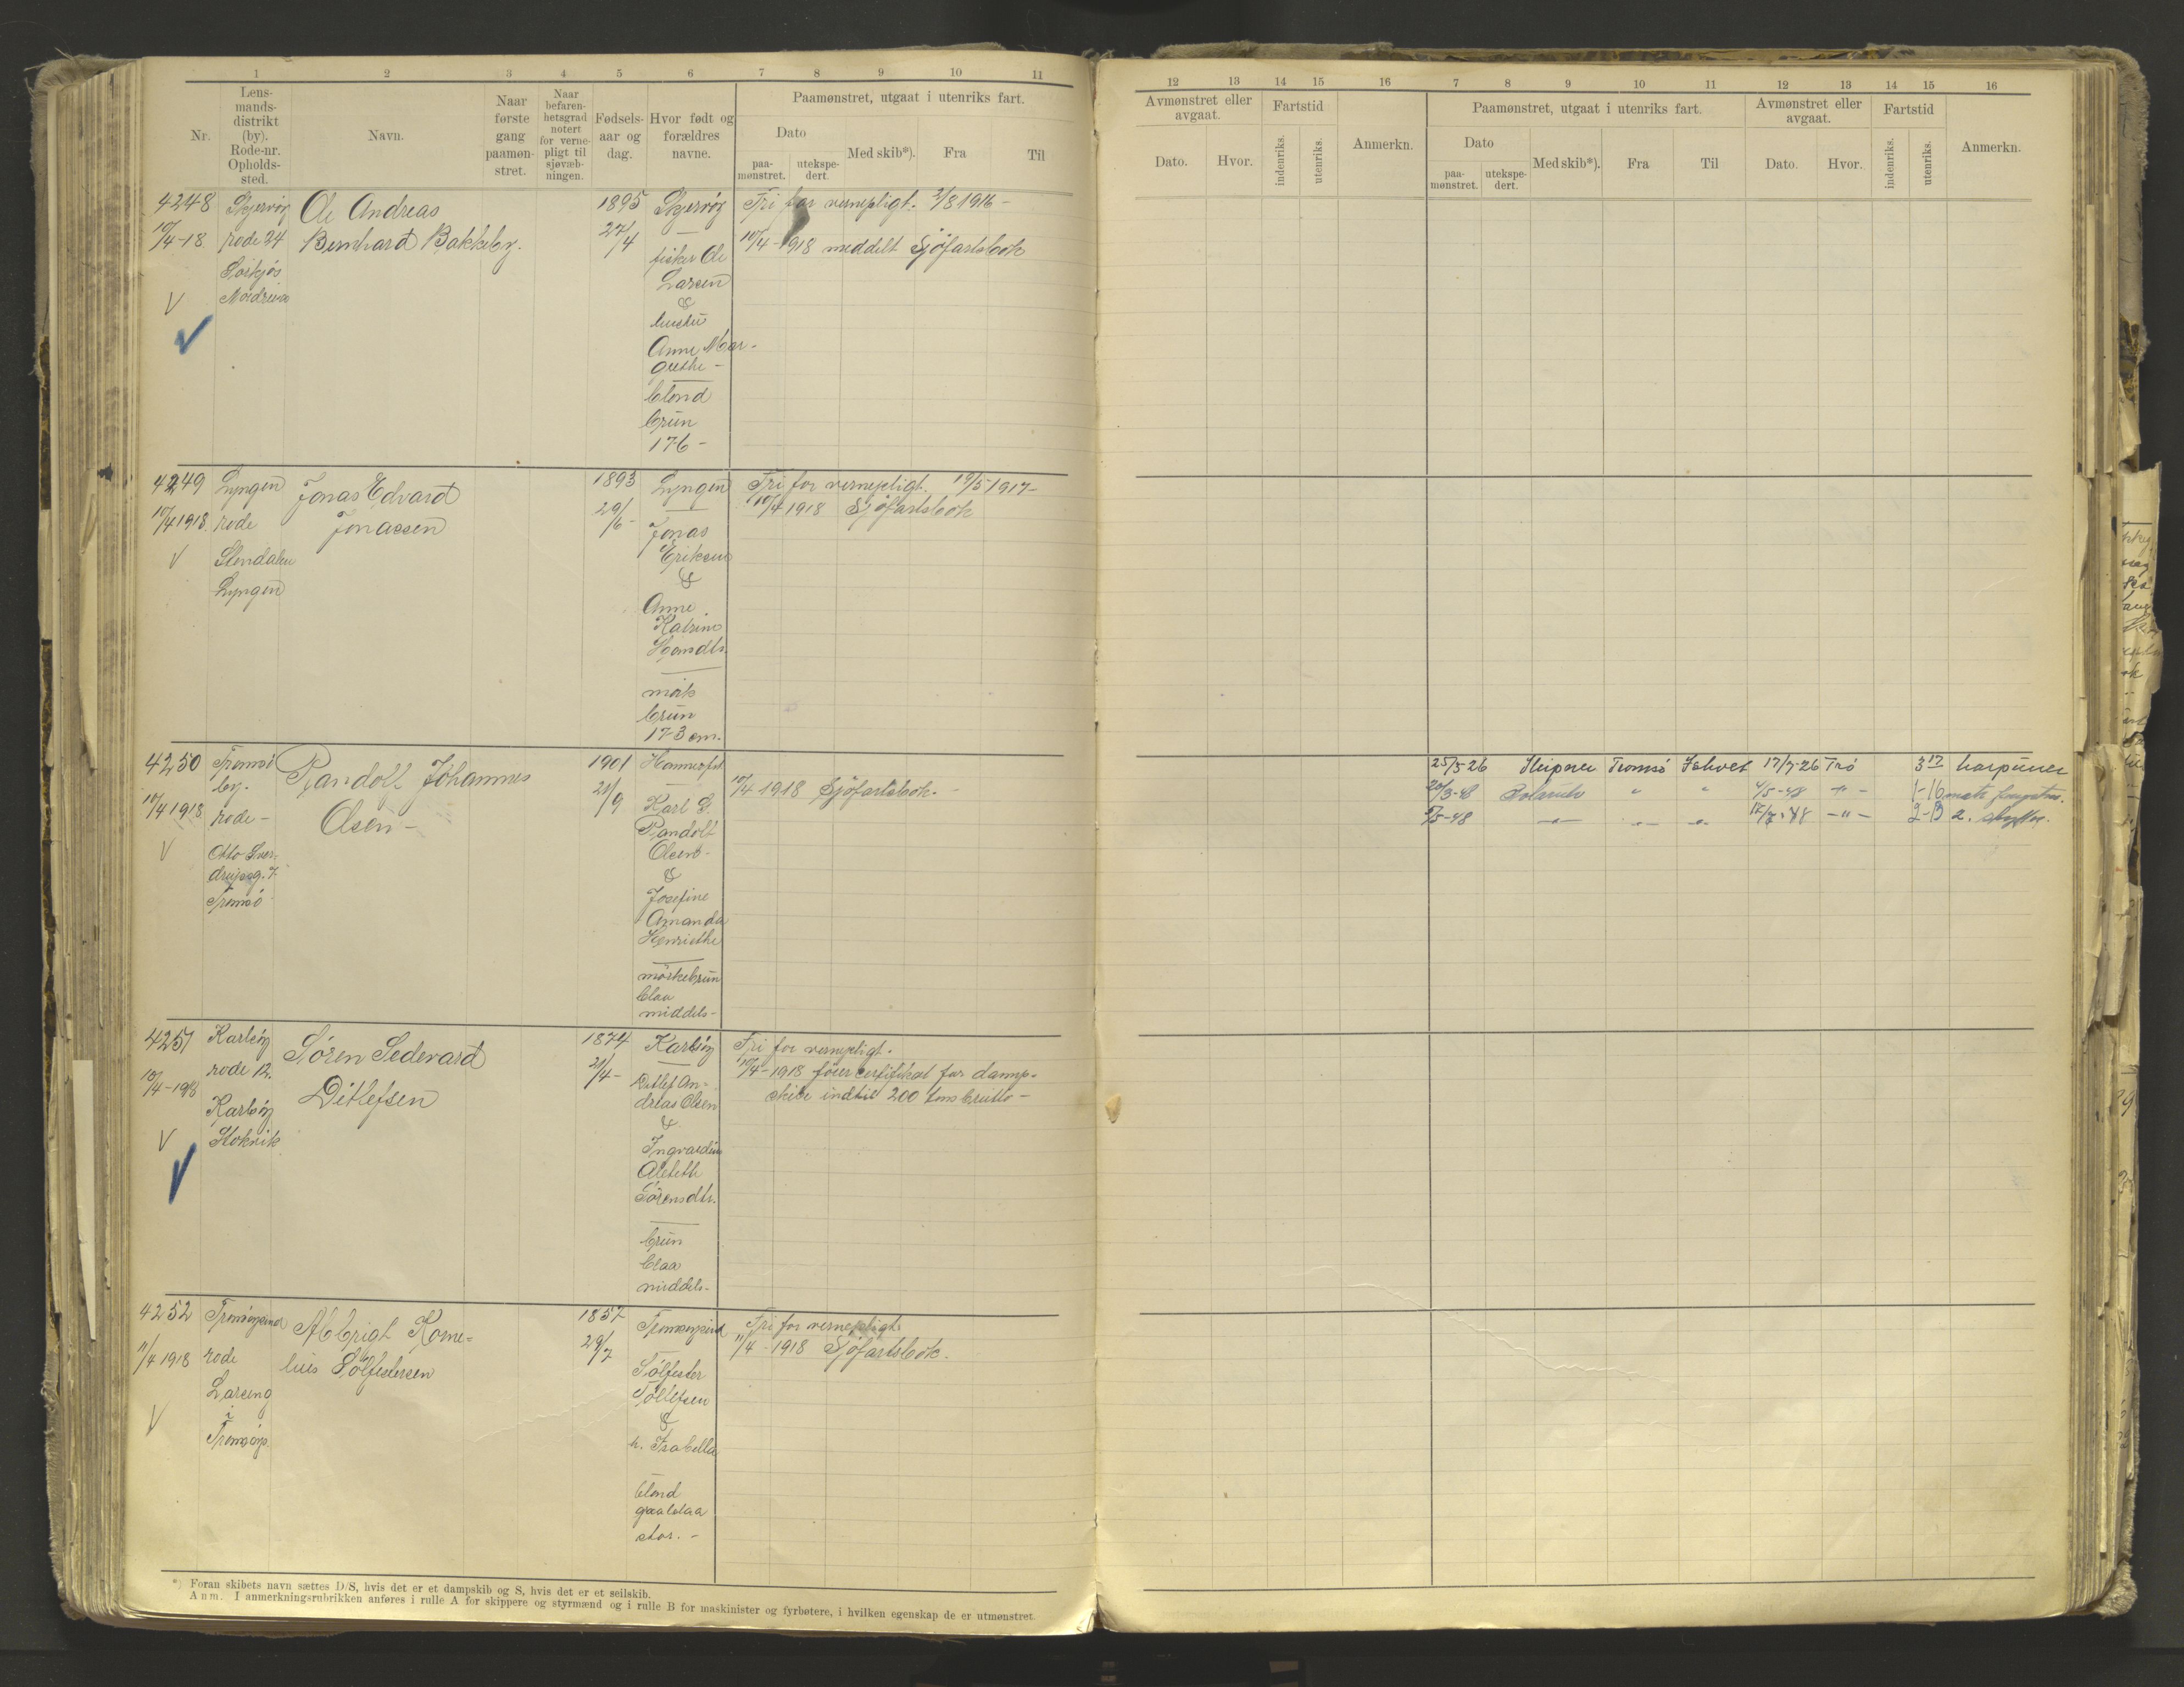 1 2 3 4 5 6 7 8 9 10 11
Nr.
Lens-
mands-
distrikt
(by).
Rode-nr.
Opholds-
sted.
Navn.
Naar
første
gang
paamøn-
stret.
Naar
befaren-
hetsgrad
notert
for verne-
pligt til
sjøvæb-
ningen.
Fødsels-
aar og
dag.
Hvor født og
forældres
navne.
Paamønstret, utgaat i utenriks fart.
Dato
paa-
mønstret.
utekspe-
dert.
Med skib*).
Fra
Til
4248
10/4-18
V
Skjervøy
rode 24
Sørkjos
Nordreisa
Ole Andreas
Bernhard Bakkeby.
1895
27/4
Skjervøy
fisker Ole
Larsen
&
hustru
Anne Mar-
grethe -
blond
brun
176 -
Fri for vernepligt. 2/8 1916 -
10/4 - 1918 meddelt Sjøfartsbok
4249
10/4 1918
V
Lyngen
rode
Stendalen
Lyngen
Jonas Edvard
Jonassen
1893
29/6 -
Lyngen
Jonas
Eriksen
&
Anne
Katrine
Hansdtr.
mørk
brun
173 cm.
Fri for vernepligt. 19/5 1917 -
10/4 1918 Sjøfartsbok
4250
10/4 1918
V
Tromsø
by.
rode -
Otto Sver-
drupsg. 7
Tromsø
Randolf Johannes
Olsen -
1901
21/9
Hammerfest
Karl G.
Randolf
Olsen -
&
Josefine
Amanda
Henriethe
mørkebrun
blaa
middels -
10/4 1918 Sjøfartsbok. -
4251
10/4 - 1918
V
Karlsøy
rode 12.
Karlsøy
Stokvik
Søren Sedevard
Ditlefsen
1874
21/4 -
Karlsøy
Ditlef An-
dreas Olsen
&
Ingvardine
Alethe
Sørensdtr.
brun
blaa
middels -
Fri for vernepligt.
10/4 - 1918 fører certifikat for damp-
skibe indtil 200 tons brutto -
4252
11/4 1918
V
Tromsøysund
rode
Larseng
i
Tromsøys.
Albrigt Korne-
lius Sølfestersen
1857
29/7
Tromsøysund
Sølfester
Tollefsen
&
h. Isabella
blond
graablaa
stor. -
Fri for vernepligt.
11/4 - 1918 Sjøfartsbok.
*) Foran skibets navn sættes D/S, hvis det er et dampskib og S, hvis det er et seilskib.
Anm. I anmerkningsrubrikken anføres i rulle A for skippere og styrmænd og i rulle B for maskinister og fyrbøtere, i hvilken egenskap de er utmønstret.
12 13 14 15 16 7 8 9 10 11 12 13 14 15 16
Avmønstret eller
avgaat.
Dato. Hvor.
Fartstid
indenriks. utenriks.
Anmerkn.
Paamønstret, utgaat i utenriks fart.
Dato
paa-
mønstret.
utekspe-
dert.
Med skib*).
Fra
Til
Avmønstret eller
avgaat.
Dato. Hvor.
Fartstid
indenriks. utenriks.
Anmerkn.
25/5-26 Sleipner Tromsø Ishvet 17/7-26 Trø 3 17 harpuner
20/3-48 " " 4/5-48 -"- 1-16
5/5-48 -"- -"- -"- 17/7-48 -"- 2-13 2. skytter.